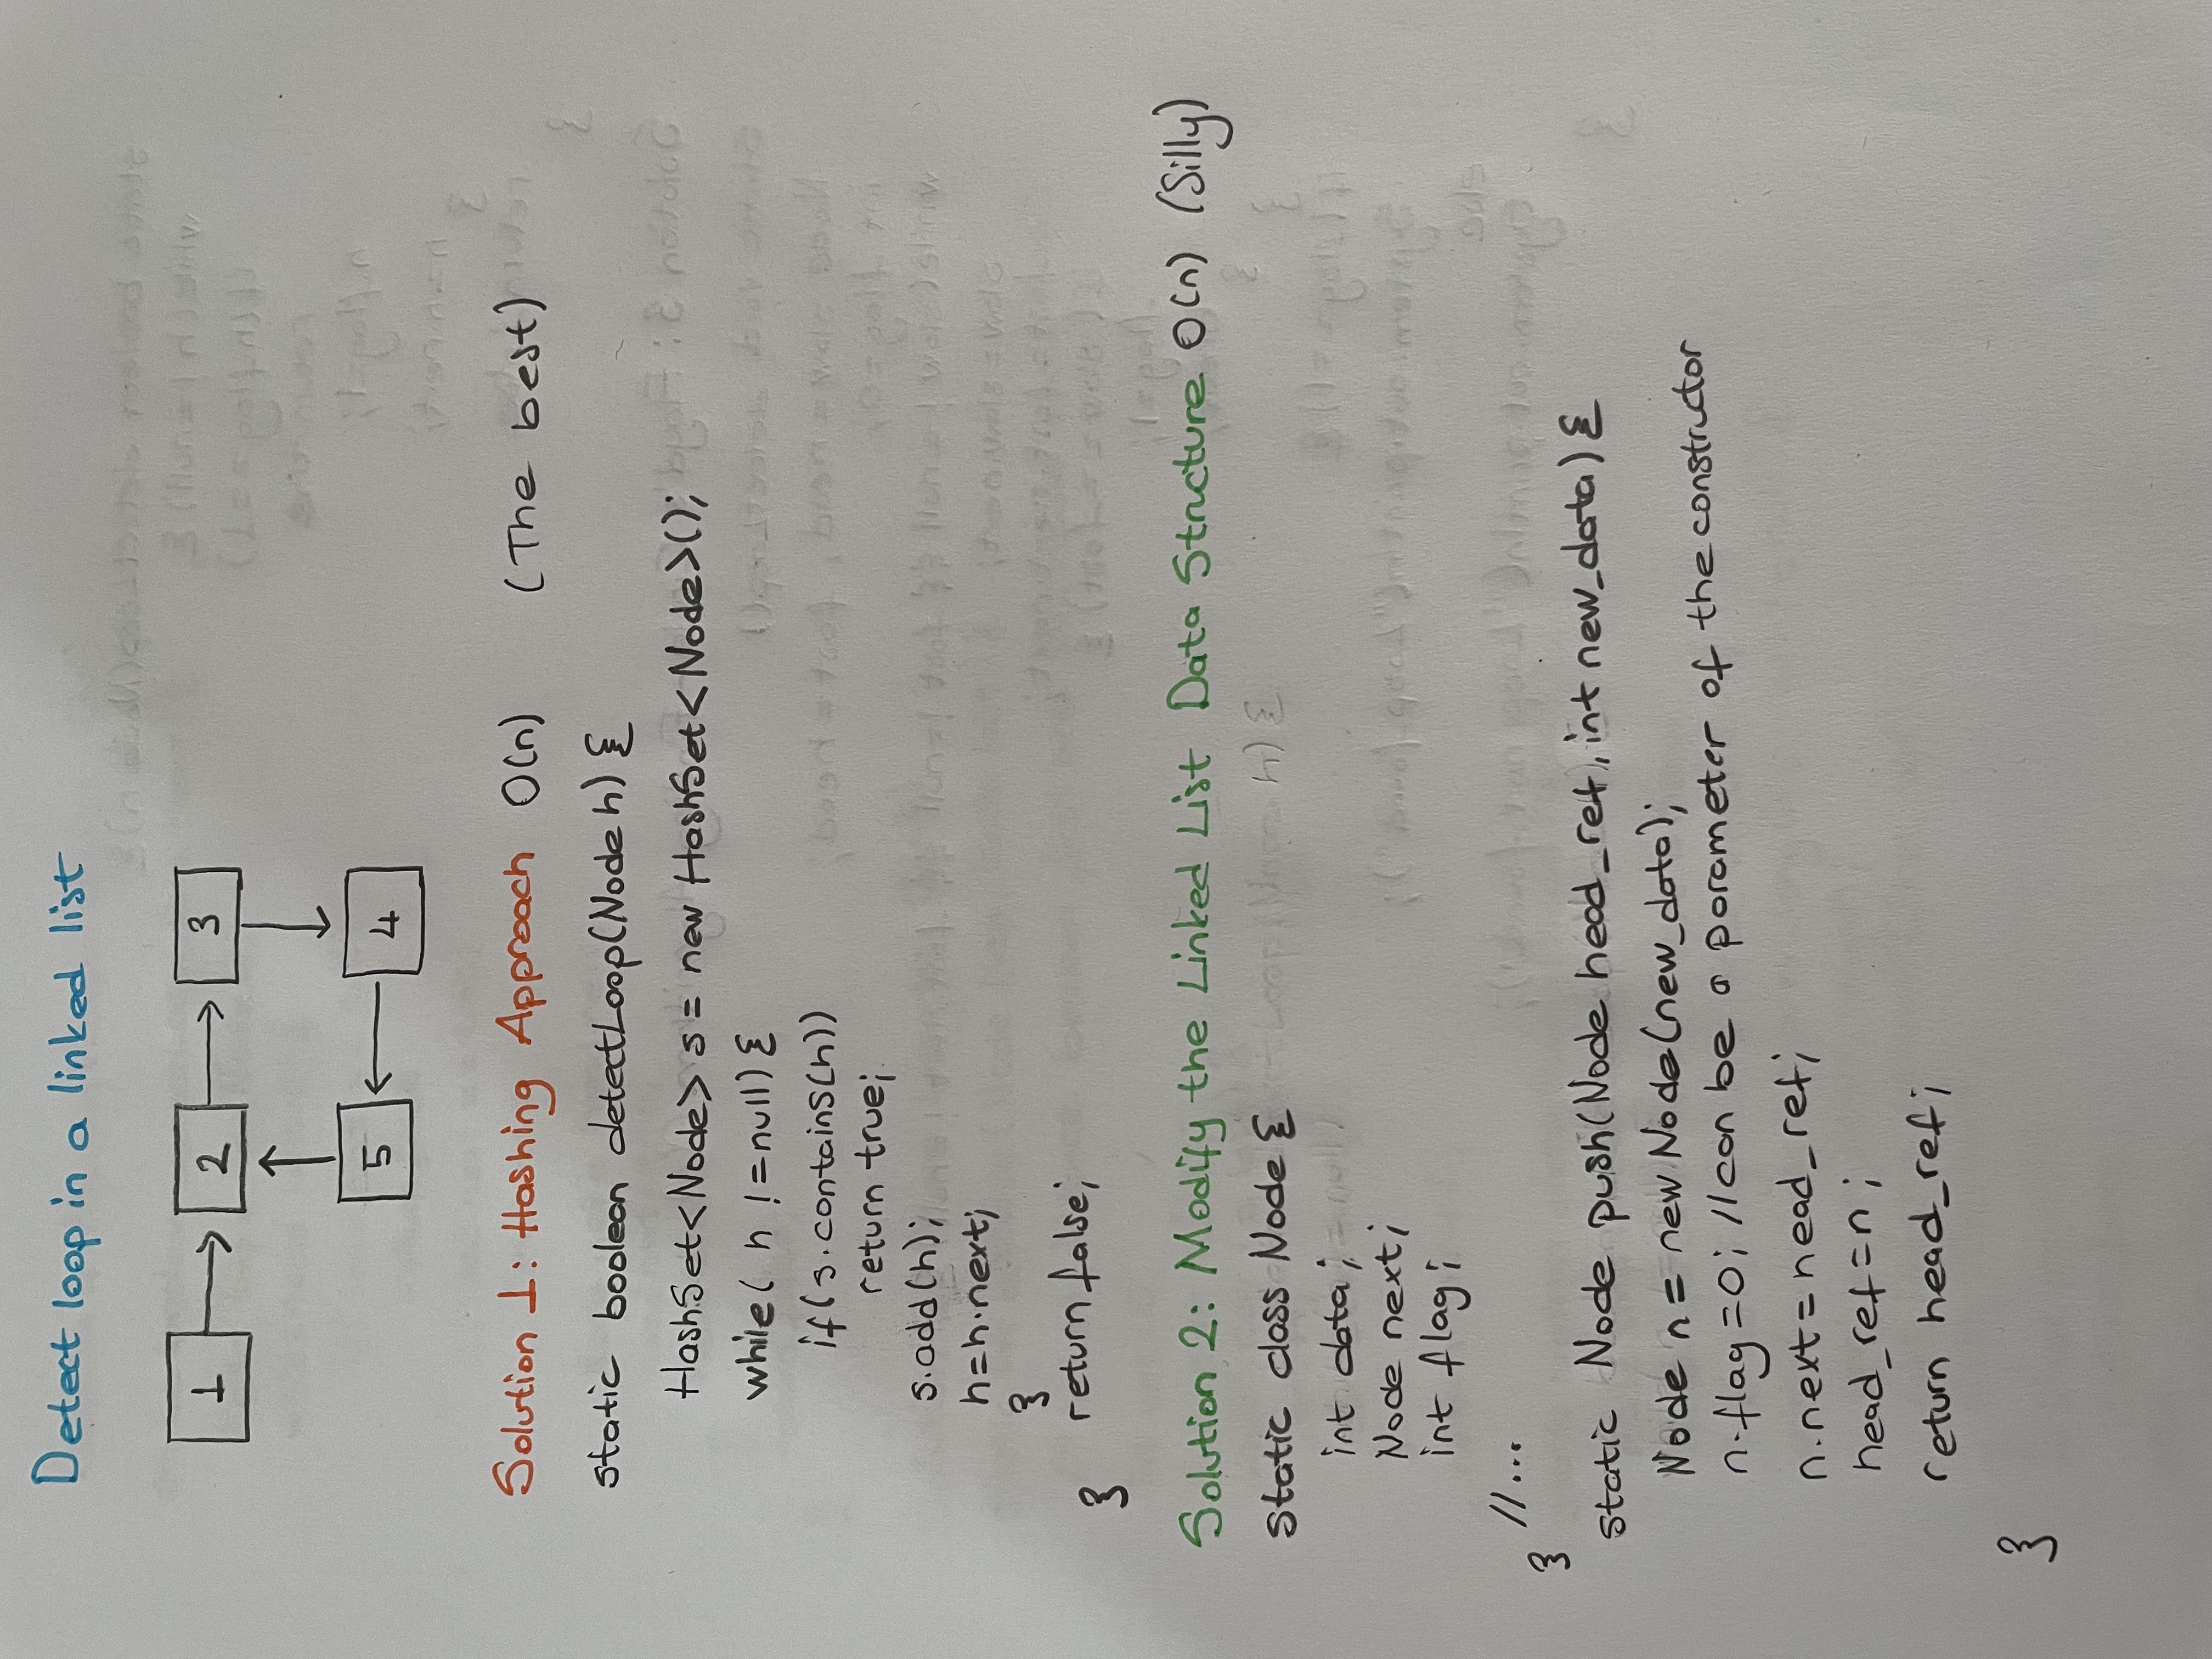 Detect loop in a linked list
1 2 3
5 4
Solution 1: Hashing Approach O(n) (The best)
static boolean detectLoop(Node h) {
HashSet<Node> s = new HashSet<Node>();
while( h != null) {
if(s.contains(h))
return true;
s.add(h);
h=h.next;
}
return false;
}
Solution 2: Modify the Linked List Data Structure O(n) (Silly)
static class Node {
int data;
Node next;
int flag;
//...
}
static Node push(Node head_ref, int new_data) {
Node n = new Node(new_data);
n.flag=0; //can be a parameter of the constructor
n.next=head_ref;
head_ref=n;
return head_ref;
}